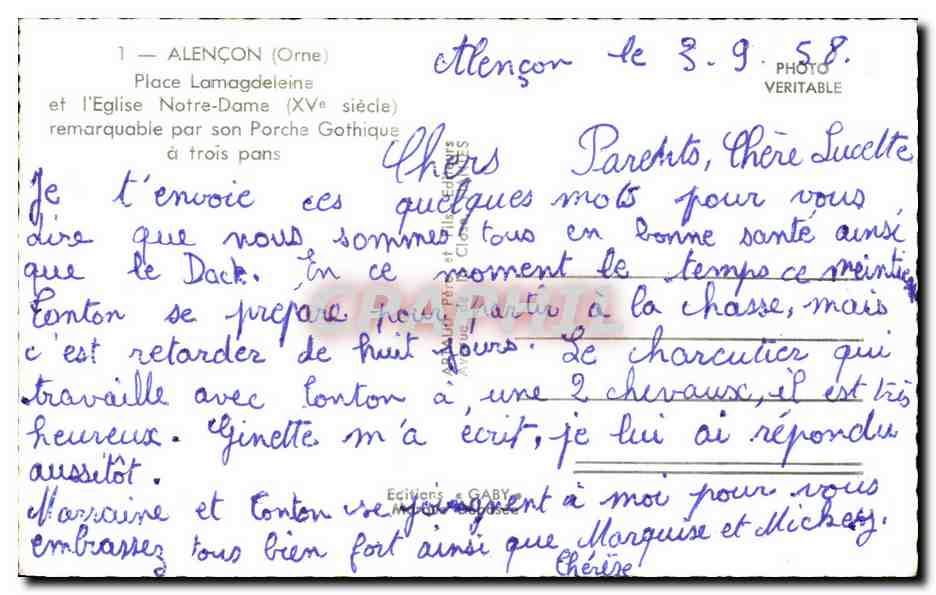 1 — ALENÇON (Orne)
Place Lamagdeleine
et l'Eglise Notre-Dame (XVe siècle)
remarquable par son Porche Gothique
à trois pans
Alençon le 3.9.58.
PHOTO
VERITABLE
Chers Parents, Chère Lucette
Je t'envoie ces quelques mots pour vous
dire que nous sommes tous en bonne santé ainsi
que le Dack. En ce moment le temps ce meintien
Tonton se prépare pour partir à la chasse, mais
c'est retarder de huit jours. Le charcutier qui
travaille avec Tonton à une 2 chevaux, il est très
heureux. Ginette m'a écrit, je lui ai répondu
aussitôt.
Marraine et Tonton se joignent à moi pour vous
embrassez tous bien fort ainsi que Marquise et Mickey.
Thérèse
Editions « GABY »
ARTAUD Père et Fils, Editeurs